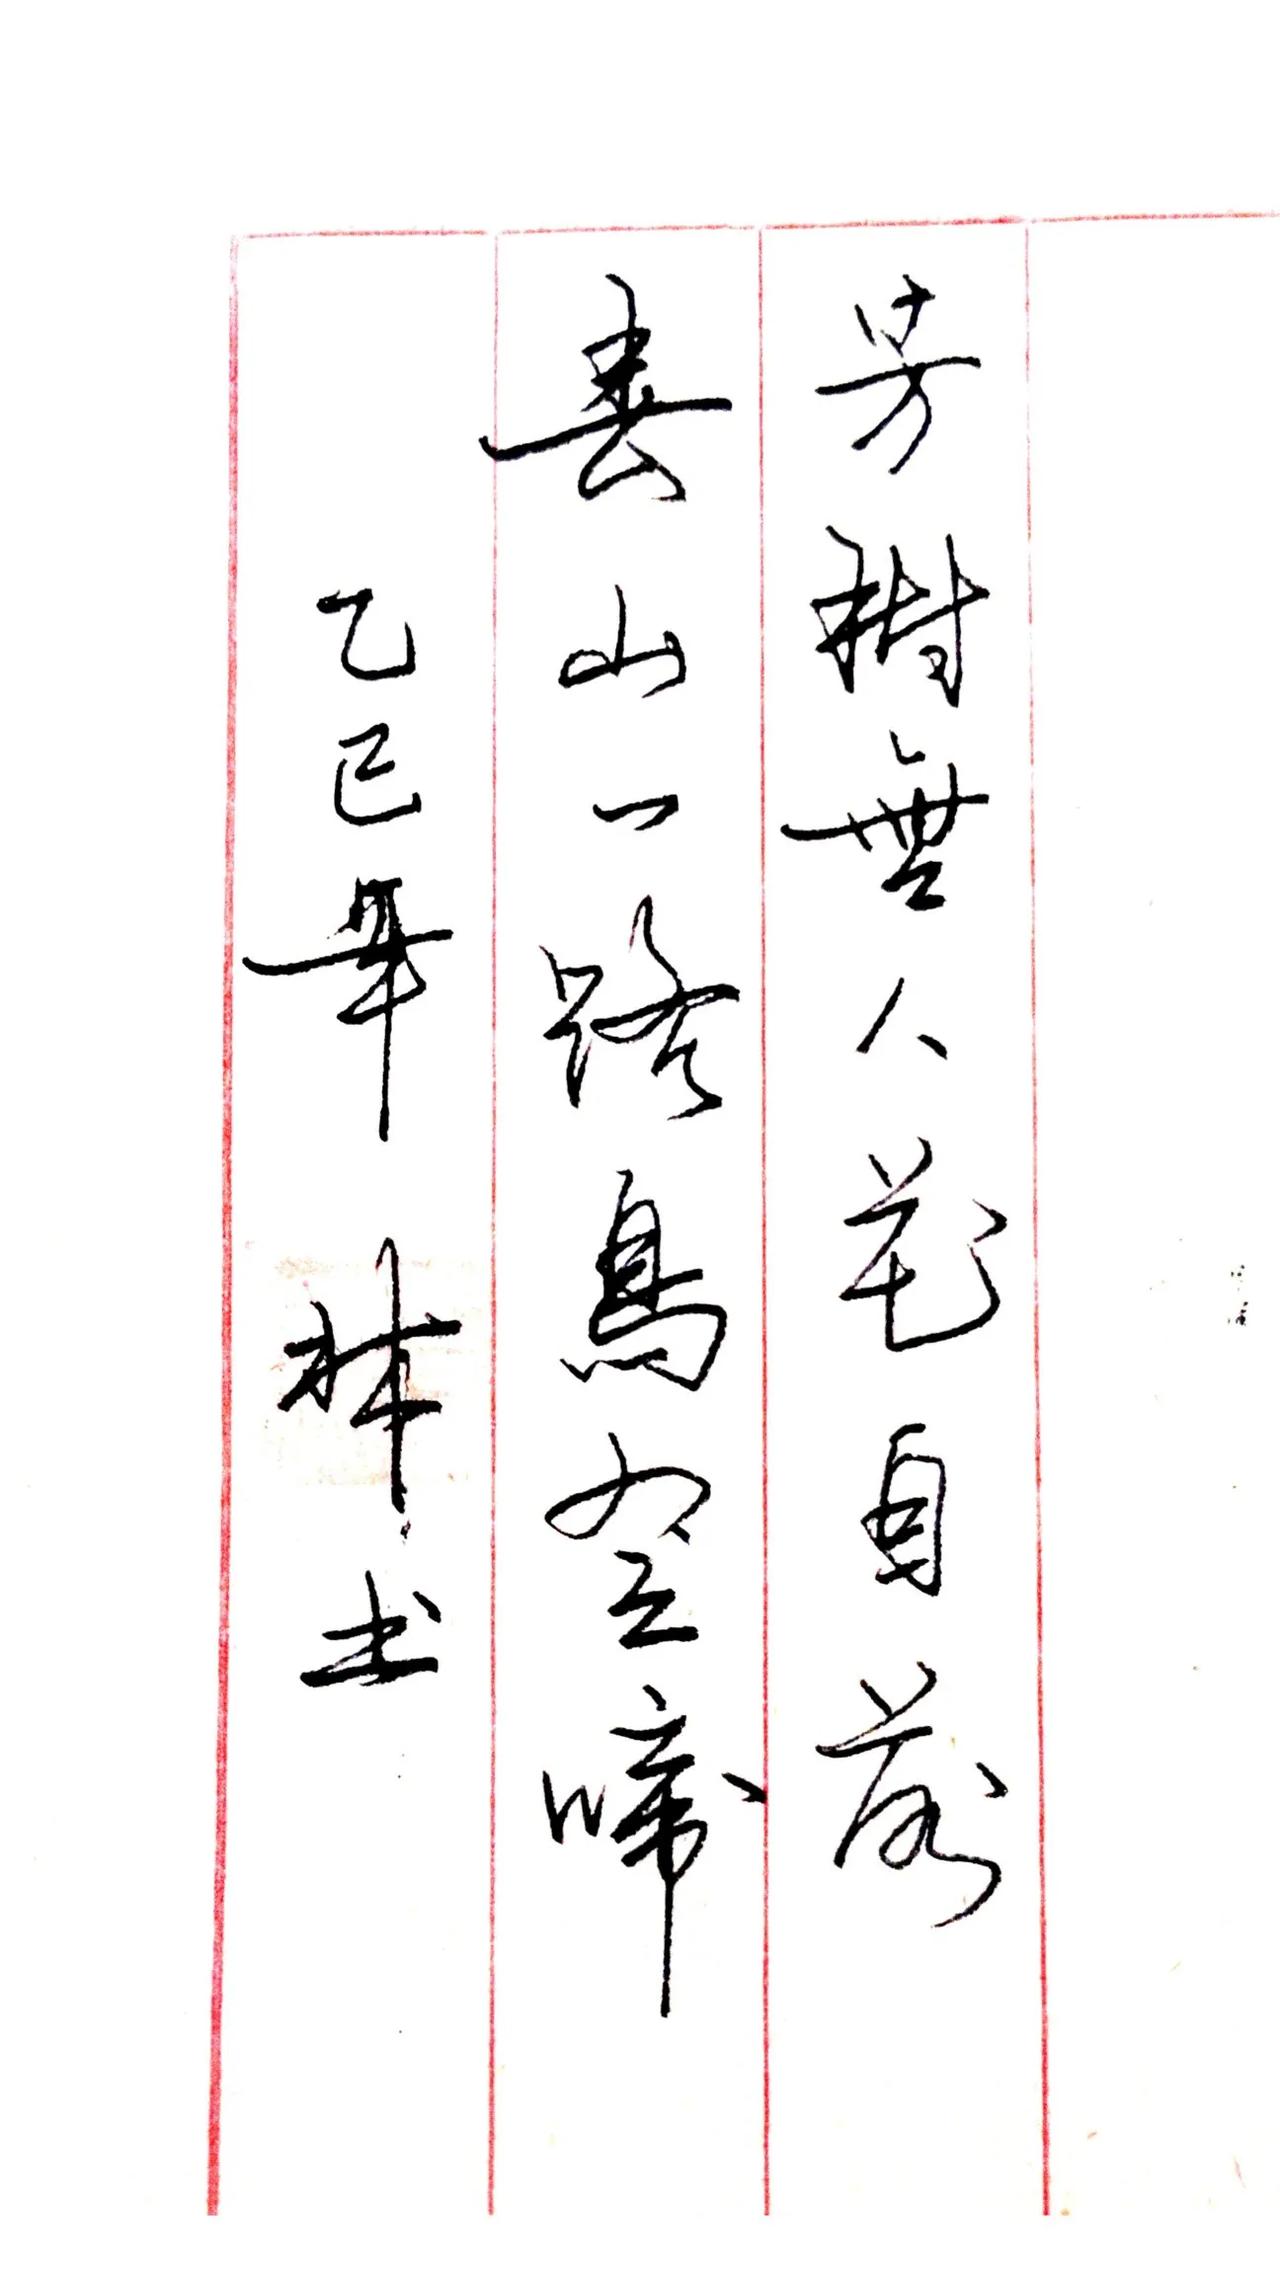 芳樹無人花自落
春山一路鳥空啼
乙巳年 林书